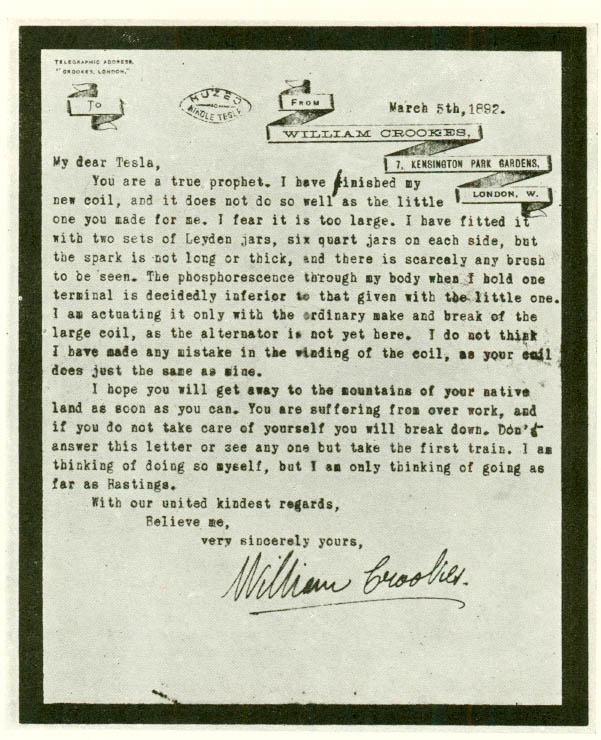 TELEGRAPHIC ADDRESS,
"CROOKES, LONDON."
TO
MUZEJ
NIKOLE TESLE
FROM
WILLIAM CROOKES,
7, KENSINGTON PARK GARDENS,
LONDON, W.
March 5th, 1892.
My dear Tesla,
You are a true prophet. I have finished my
new coil, and it does not do so well as the little
one you made for me. I fear it is too large. I have fitted it
with two sets of Leyden jars, six quart jars on each side, but
the spark is not long or thick, and there is scarcely any brush
to be seen. The phosphorescence through my body when I hold one
terminal is decidedly inferior to that given with the little one.
I am actuating it only with the ordinary make and break of the
large coil, as the alternator is not yet here. I do not think
I have made any mistake in the winding of the coil, as your coil
does just the same as mine.
I hope you will get away to the mountains of your native
land as soon as you can. You are suffering from over work, and
if you do not take care of yourself you will break down. Don't
answer this letter or see any one but take the first train. I am
thinking of doing so myself, but I am only thinking of going as
far as Hastings.
With our united kindest regards,
Believe me,
very sincerely yours,
William Crookes.